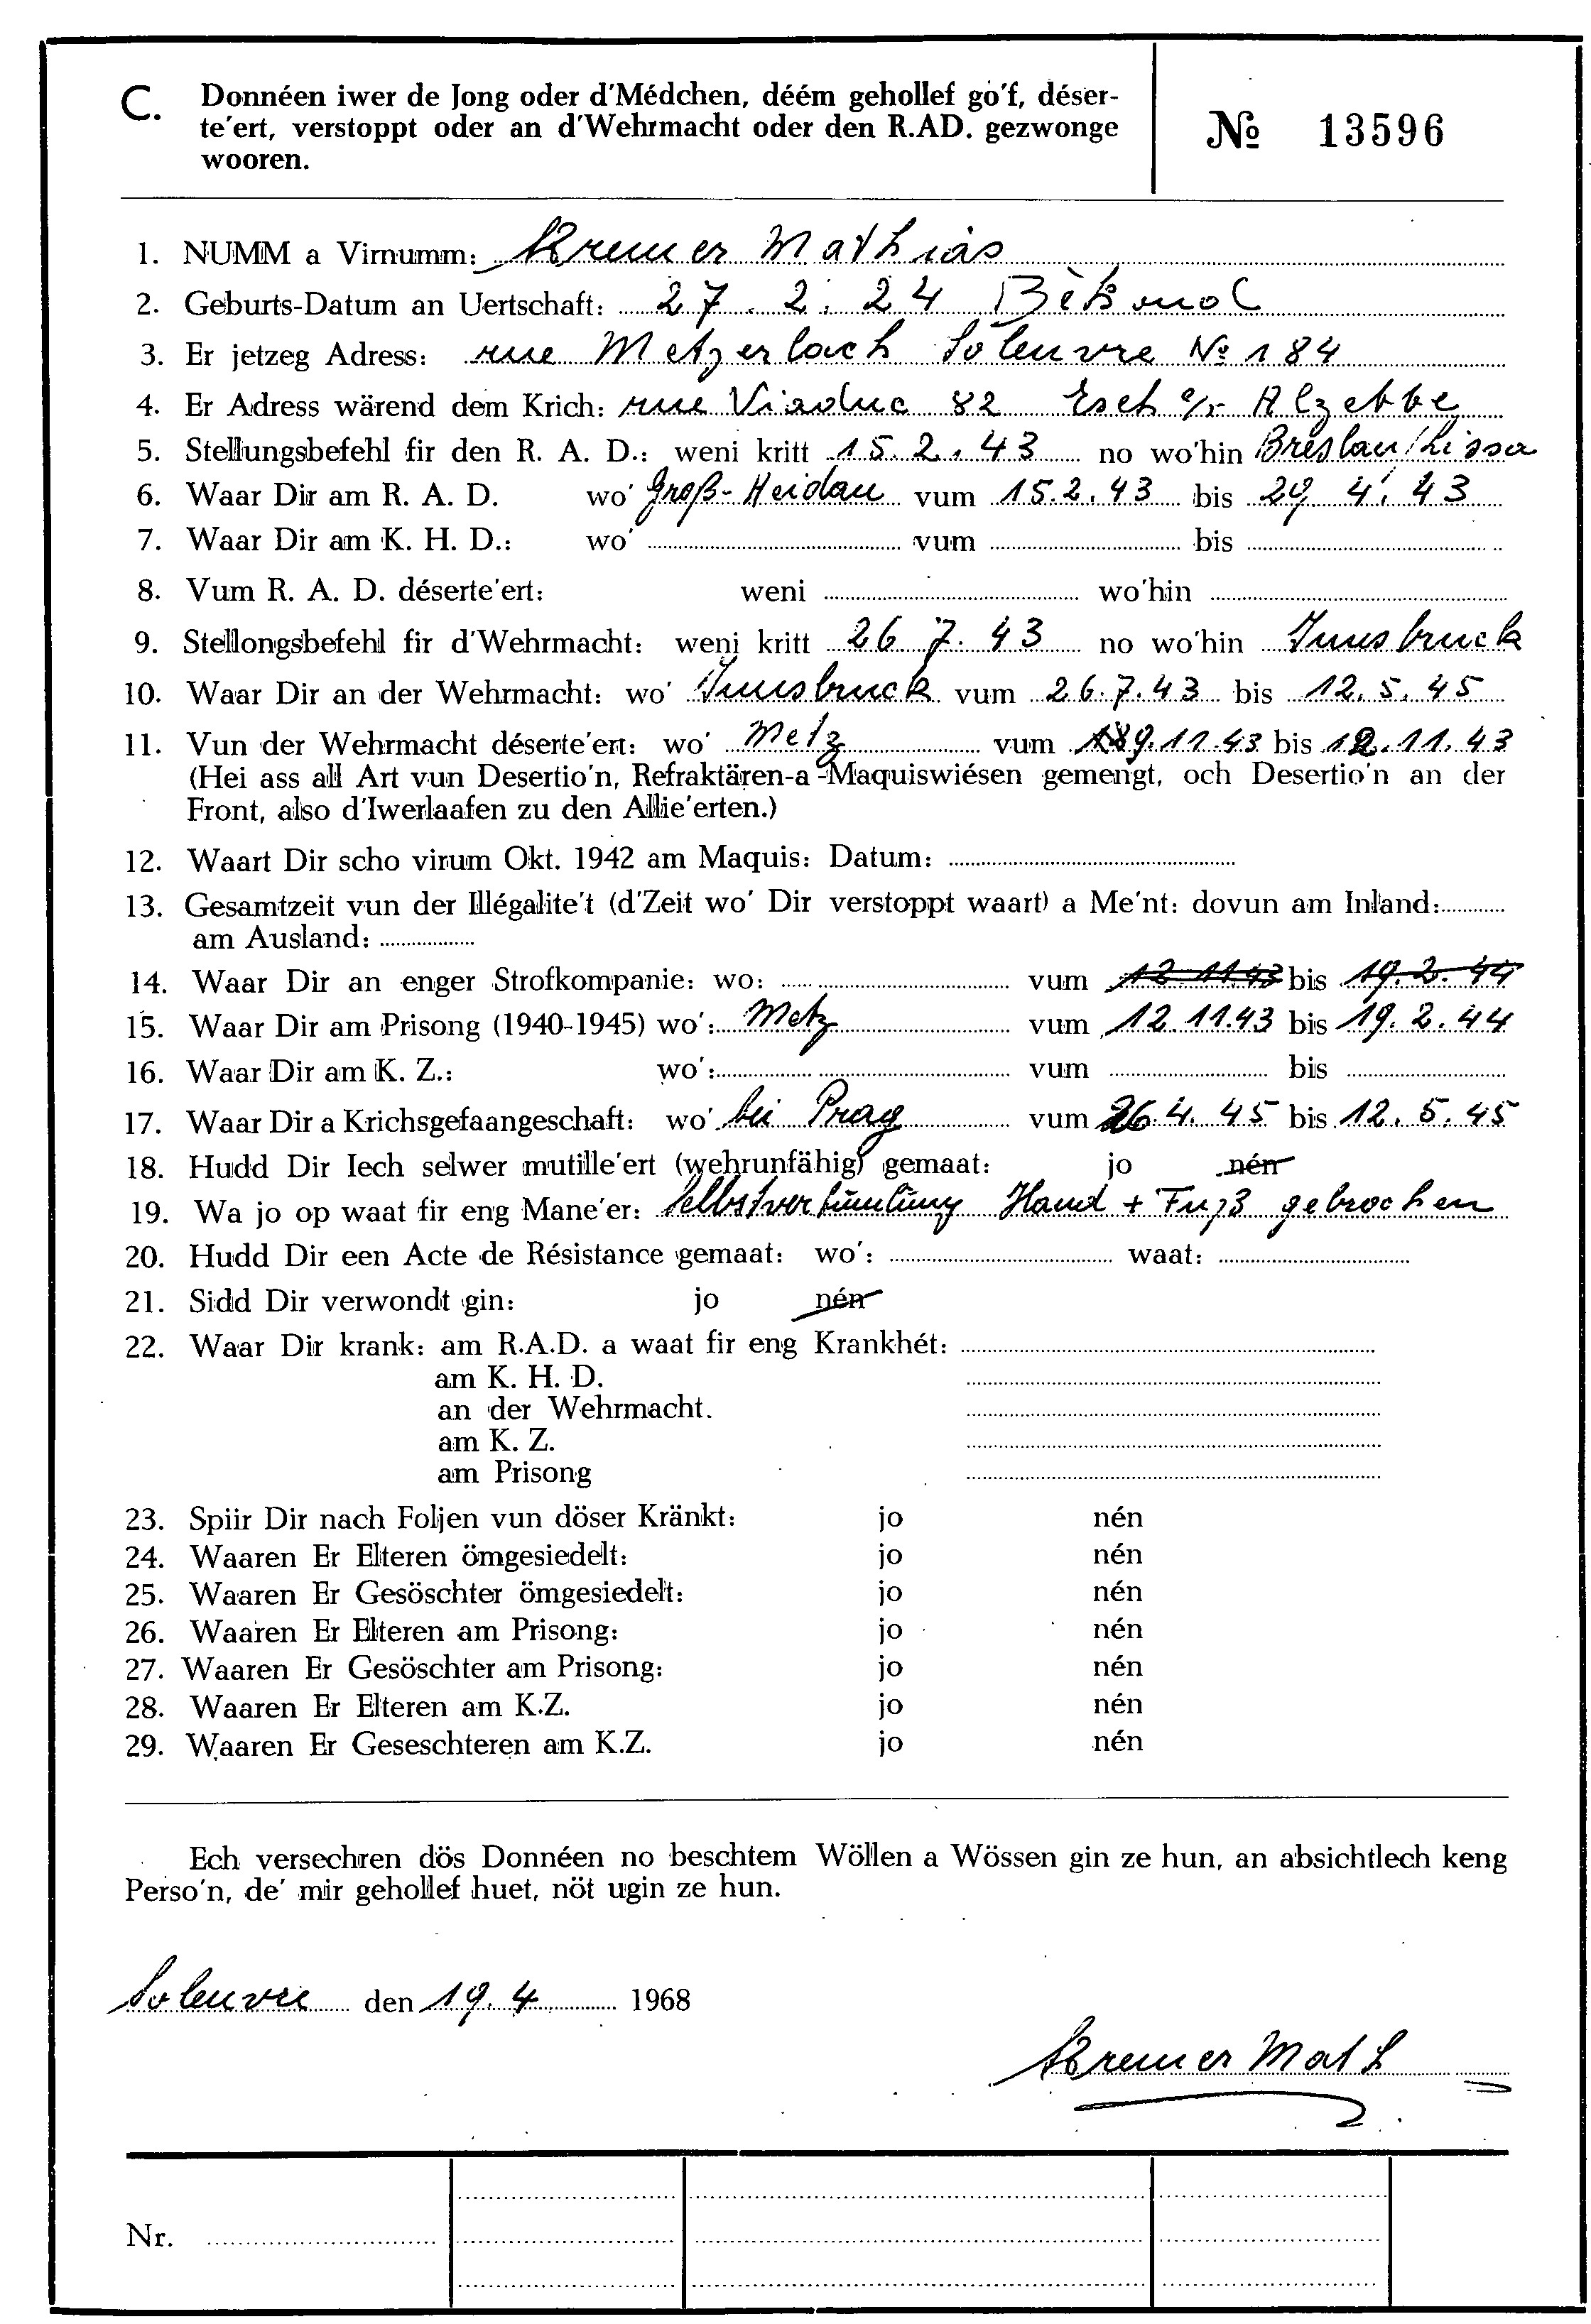 C. Donnéen iwer de Jong oder d'Médchen, déém gehollef go'f, déser-
te'ert, verstoppt oder an d'Wehrmacht oder den R.AD. gezwonge
wooren.
№ 13596
1. NUMM a Virnumm: Kremer Mathias
2. Geburts-Datum an Uertschaft: 27. 2. 24
3. Er jetzeg Adress: rue Metzerlach Soleuvre № 184
4. Er Adress wärend dem Krich: rue Viaduc 82 Esch s/ Alzette
5. Stellungsbefehl fir den R. A. D.: weni kritt 15. 2. 43 no wo'hin Breslau/Lissa
6. Waar Dir am R. A. D. wo' Groß-Heidau vum 15.2.43 bis 29 4. 43
7. Waar Dir am K. H. D.: wo' vum bis
8. Vum R. A. D. déserte'ert: weni wo'hin
9. Stellongsbefehl fir d'Wehrmacht: weni kritt 26 7. 43 no wo'hin Innsbruck
10. Waar Dir an der Wehrmacht: wo' Innsbruck vum 26.7.43 bis 12. 5. 45
11. Vun der Wehrmacht déserte'ert: wo' Metz vum 9.11.43 bis 12.11.43
(Hei ass all Art vun Desertio'n, Refraktären-a-Maquiswiésen gemengt, och Desertio'n an der
Front, also d'Iwerlaafen zu den Allie'erten.)
12. Waart Dir scho virum Okt. 1942 am Maquis: Datum:
13. Gesamtzeit vun der Illégalite't (d'Zeit wo' Dir verstoppt waart) a Me'nt: dovun am Inland:
am Ausland:
14. Waar Dir an enger Strofkompanie: wo: vum 12 11.43 bis 19. 2. 44
15. Waar Dir am Prisong (1940-1945) wo': Metz vum 12.11.43 bis 19. 2. 44
16. Waar Dir am K. Z.: wo': vum bis
17. Waar Dir a Krichsgefaangeschaft: wo' bei Prag vum 26.4. 45 bis 12. 5. 45
18. Hudd Dir Iech selwer mutille'ert (wehrunfähig) gemaat: jo nén
19. Wa jo op waat fir eng Mane'er: Hand + Fuß gebrochen
20. Hudd Dir een Acte de Résistance gemaat: wo': waat:
21. Sidd Dir verwondt gin: jo nén
22. Waar Dir krank: am R.A.D. a waat fir eng Krankhét:
am K. H. D.
an der Wehrmacht.
am K. Z.
am Prisong
23. Spiir Dir nach Foljen vun döser Kränkt: jo nén
24. Waaren Er Elteren ömgesiedelt: jo nén
25. Waaren Er Gesöschter ömgesiedelt: jo nén
26. Waaren Er Elteren am Prisong: jo nén
27. Waaren Er Gesöschter am Prisong: jo nén
28. Waaren Er Elteren am K.Z. jo nén
29. Waaren Er Geseschteren am K.Z. jo nén
Ech versechren dös Donnéen no beschtem Wöllen a Wössen gin ze hun, an absichtlech keng
Perso'n, de' mir gehollef huet, nöt ugin ze hun.
Soleuvre den 19. 4 1968
Kremer Math
Nr.